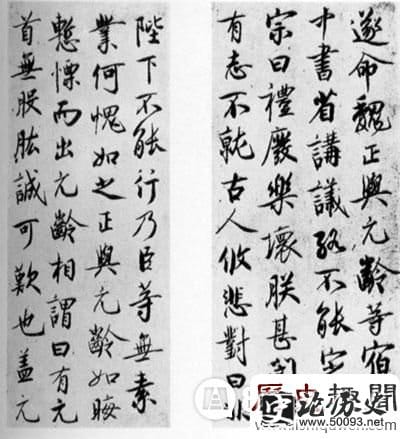 遂命魏正與元齡等宿
中書省講議終不能
宗曰禮廢樂壞朕甚
有志不就古人攸悲對曰
陛下不能行乃臣等無素
業何愧如之正與元齡如晦
慙慄而出元齡相謂曰有元
首無股肱誠可歎也蓋元
歷史趣聞
论历史
www.50093.net